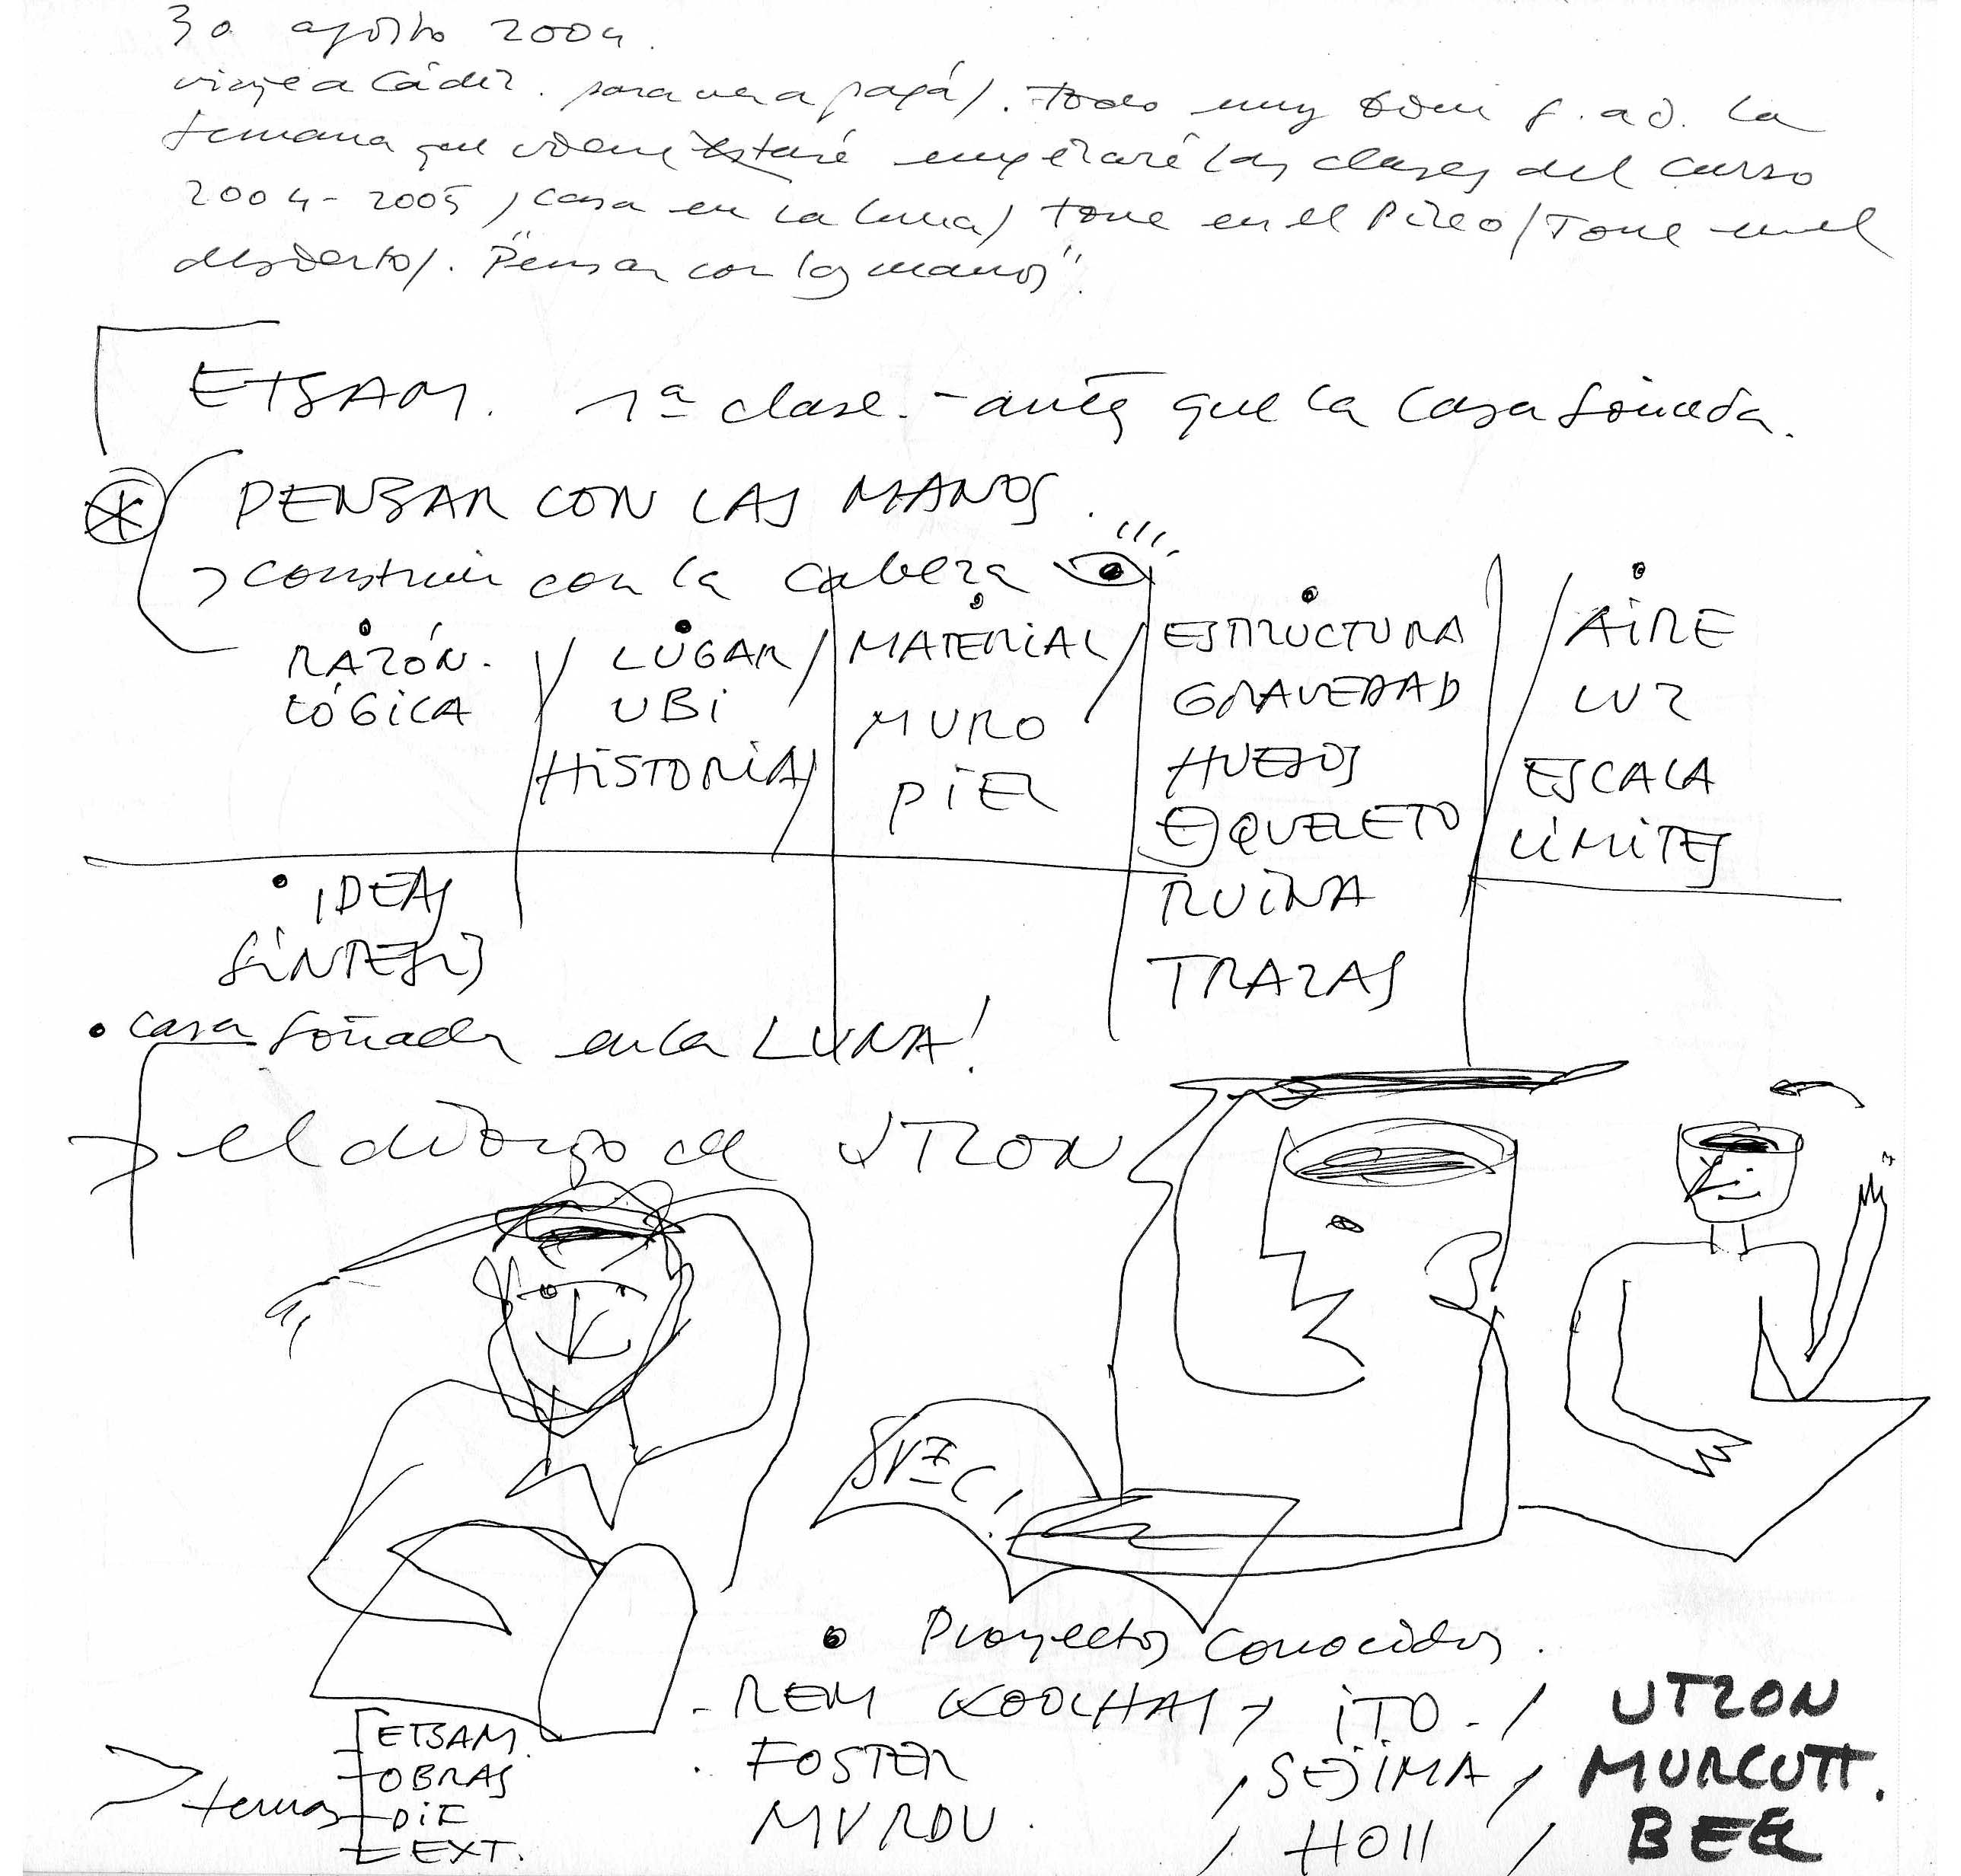 30 agosto 2004.
viaje a Cádiz. para ver a papá/. Todo muy bien g. a D. La
semana que viene estaré empezaré las clases del curso
2004-2005, casa en la luna/ torre en el Pireo/Torre en el
desierto/. "Pensar con las manos".
ETSAM. 1ª clase. - antes que la casa soñada.
PENSAR CON LAS MANOS.
construir con la cabeza
RAZÓN. / LUGAR / MATERIAL / ESTRUCTURA / AIRE
LÓGICA UBI MURO GRAVEDAD LUZ
HISTORIA PIEL HUESOS ESCALA
ESQUELETO LÍMITES
• IDEAS RUINA
SÍNTESIS TRAZAS
• casa soñada en la LUNA!
el dibujo de UTZON
• Proyectos Conocidos.
- REM KOOLHAS, ITO. / UTZON
ETSAM. . FOSTER , SEJIMA / MURCUTT.
OBRAS MVRDV. / HOLL / BEE
temas DIF
EXT.